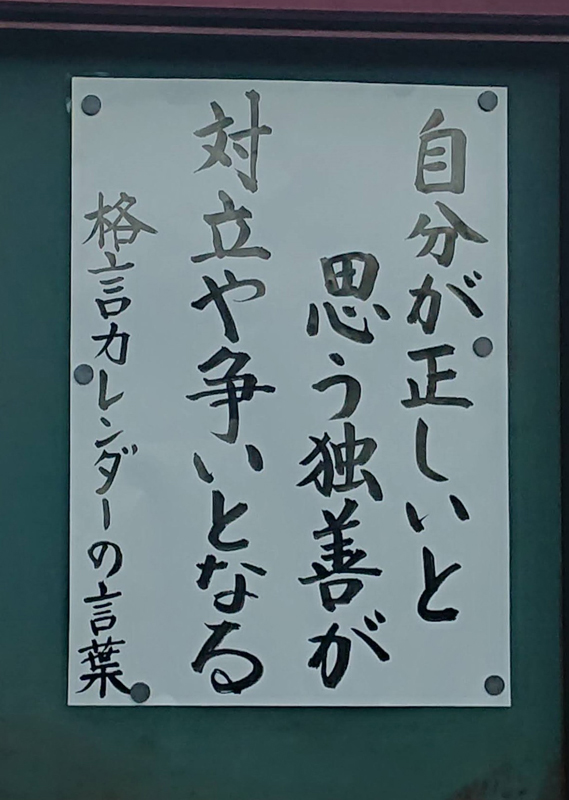 自分が正しいと
思う独善が
対立や争いとなる
格言カレンダーの言葉